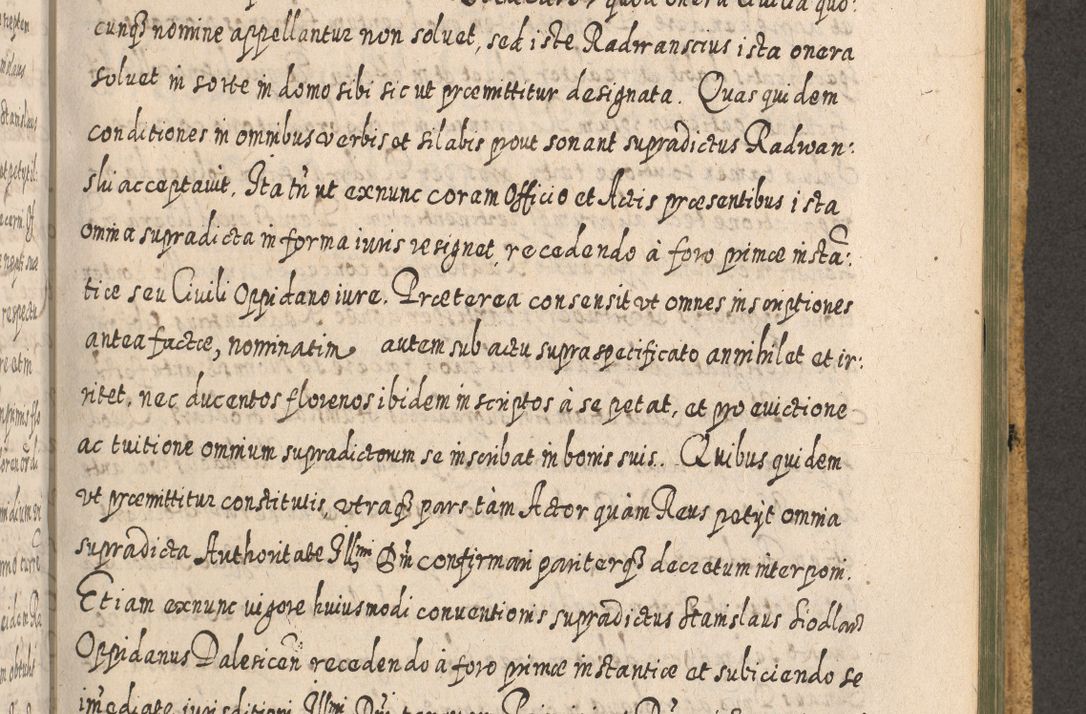 quod onera Civilia quo:
cunq₃ nomine appellantur non soluet, sed iste Radwanscius ista onera
soluet in sorte in domo sibi sic ut præmittitur designata. Quas quidem
conditiones in omnibus verbis et silabis prout sonant supradictus Radwan:
ski acceptauit. Ita tñ ut exnunc coram Officio et Actis præsentibus ista
omnia supradicta in forma iuris resignet, recedendo à foro primæ instã:
tiæ seu Civili Oppidano iure. Præterea consensit vt omnes inscriptiones
antea factæ, nominatim autem sub actu supraspecificato annihilet et ir:
ritet, nec ducentos florenos ibidem inscriptos à se petat, et pro euictione
ac tuitione omnium supradictorum se inscribat in bonis suis. Quibus quidem
vt præmittitur constitutis, vtraq₃ pars tàm Actor quàm Reus petÿt omnia
supradicta Authoritate Illmi Dñi confirmari pariterq₃ decretum interponi.
Etiam exnunc uigore huiusmodi conuentionis supradictus Stanislaus Siodlarz
Oppidanus Dalesicen̄ recedendo à foro primæ instantiæ et subiciendo se
im̄ediate iurisditioni Illmi Dñi